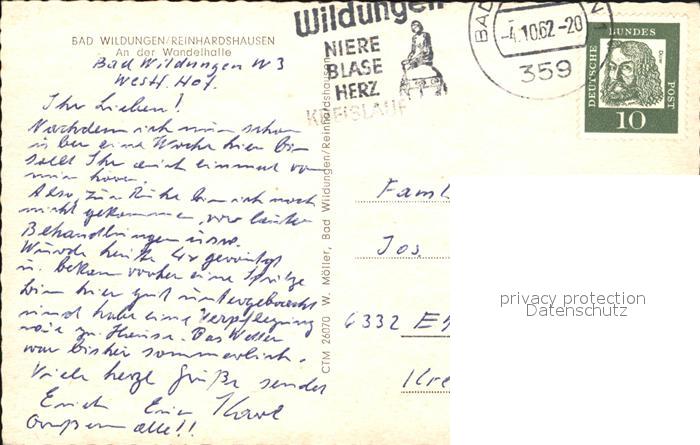 BAD WILDUNGEN/REINHARDSHAUSEN
An der Wandelhalle
Bad Wildungen W 3
Westf. Hof.
Ihr Lieben!
Nachdem ich nun schon
über eine Woche hier bin
sollt Ihr auch einmal von
mir hören.
Also, zur Ruhe bin ich noch
nicht gekommen, vor lauter
Behandlungen usw.
Wurde heute 4x geröntgt
u. bekam vorher eine Spritze
bin hier gut untergebracht
und habe eine Verpflegung
wie zu Hause. Das Wetter
war bisher sommerlich.
Viele herzl Grüße sendet
Euch Karl
Grüßen alle!!
CTM 26070 W. Möller, Bad Wildungen/Reinhardshausen
Wildungen
NIERE
BLASE
HERZ
KREISLAUF
BAD
-4.10.62-20
359
DEUTSCHE BUNDESPOST
Dürer
10
Faml
Jos.
6332
Kre
privacy protection
Datenschutz